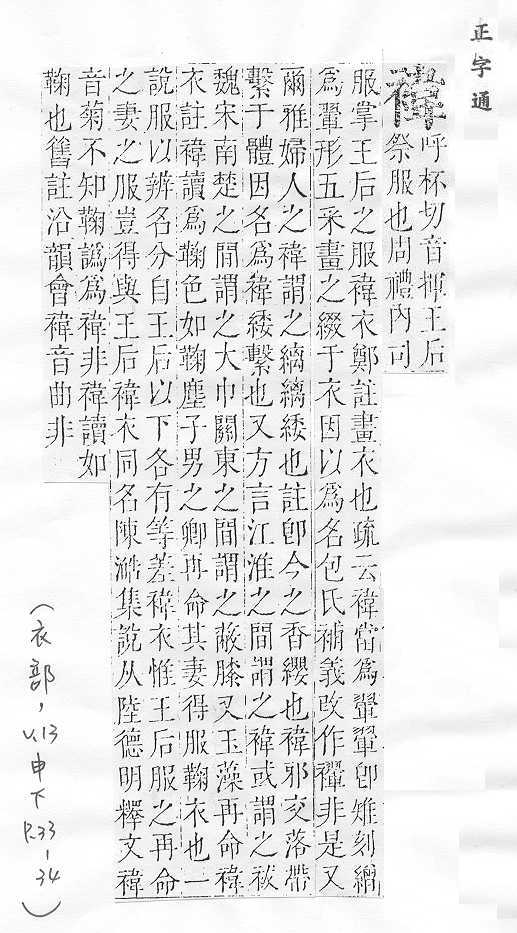 正字通
褘
呼杯切音揮王后
祭服也周禮內司
服掌王后之服褘衣鄭註畫衣也疏云褘當爲翬翬卽雉刻繒
爲翬形五采畫之綴于衣因以爲名包氏補義改作褌非是又
爾雅婦人之褘謂之縭縭緌也註卽今之香纓也褘邪交落帶
繫于體因名爲褘緌繫也又方言江淮之間謂之褘或謂之祓
魏宋南楚之間謂之大巾關東之間謂之蔽膝又玉藻再命褘
衣註褘讀爲鞠色如鞠塵子男之卿再命其妻得服鞠衣也一
說服以辨名分自王后以下各有等差褘衣惟王后服之再命
之妻之服豈得與王后褘衣同名陳澔集說从陸德明釋文褘
音菊不知鞠譌爲褘非褘讀如
鞠也舊註沿韻會褘音曲非
（衣部，v.13申下P.33-34）